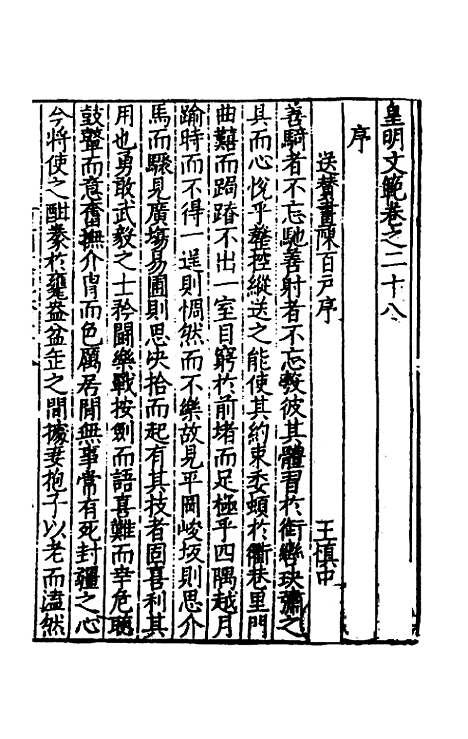 皇明文範卷之二十八
序
送贊畫陳百戶序　王慎中
善騎者不忘馳善射者不忘彀彼其體習於銜轡玦彇之
具而心悅乎鞶控縱送之能使其約束委頓於衢巷里門
曲囏而跼蹐不出一室目窮於前堵而足極乎四隅越月
踰時而不得一逞則惆然而不樂故見平岡峻坂則思介
馬而驟見廣場易圃則思決拾而起有其技者固喜利其
用也勇敢武毅之士矜鬬樂戰按劍而語喜難而幸危聽
鼓鼙而意奮撫介冑而色厲居閒無事常有死封疆之心
今將使之酣豢於甕盎盆缶之間據妻抱子以老而溘然